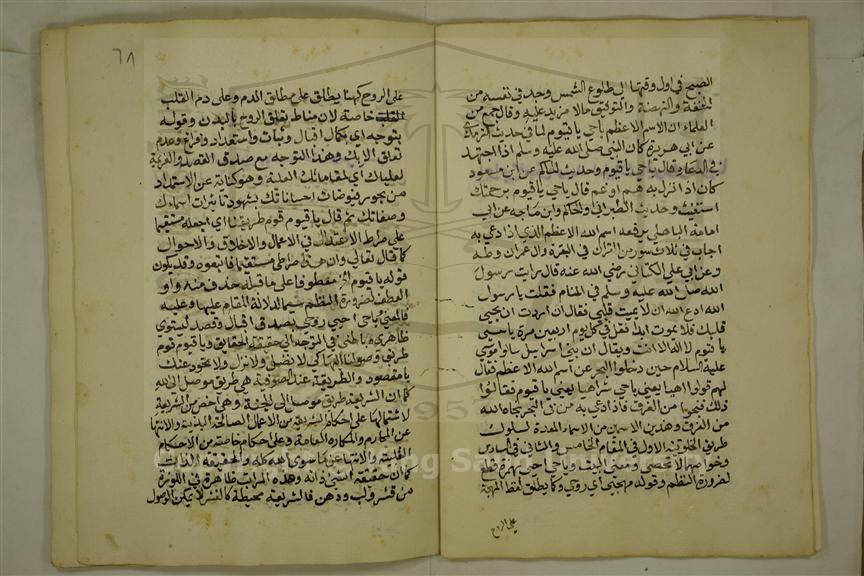 الصبح في اول وقتها الى طلوع الشمس وجد في نفسه من
الخفة والنهضة والتوفيق حالا مزيد عليه وقال جمع من
العلماء ان الاسم الاعظم ياحي ياقيوم لما في حديث الترمذي
عن ابي هريرة كان النبي صلى الله عليه وسلم اذا اجتهد
في الدعاء قال ياحي ياقيوم وحديث الحاكم عن ابن مسعود
كان اذا نزل به هم او غم قال ياحي ياقيوم برحمتك
استغيث وحديث الطبراني والحاكم وابن ماجه عن ابي
امامة الباهلي يرفعه اسم الله الاعظم الذي اذا دعي به
اجاب في ثلاث سور من القرآن في البقرة وال عمران وطه
وعن ابي علي الكتاني رضي الله عنه قال رايت رسول
الله صلى الله عليه وسلم في المنام فقلت يا رسول
الله ادع الله ان لا يميت قلبي فقال ان اردت ان يحيى
قلبك فلا يموت ابدا فقل في كل يوم اربعين مرة ياحي
يا قيوم لا اله الا انت ويقال ان بني اسرائيل سالوا موسى
عليه السلام حين دخلوا البحر عن اسم الله الاعظم فقال
لهم قولوا اهيا يعني ياحي شراهيا يعني ياقيوم فقالوا
ذلك فنجوا من الغرق فاذا دعي به من في البحر نجاه الله
من الغرق وهذين الاسمين من الاسماء المعدة لسلوك
طريق الخلوتية الاول في المقام الخامس والثاني في السادس
وخواصها لا تحصى ومعنى البيت وياحي احي بهمزة قطع
لضرورة النظم وقوله مهجتي اي روحي وكما يطلق لفظ المهجة
على الروح
٦٨
على الروح كهنا يطلق على مطلق الدم وعلى دم القلب
خاصة لان مناط تعلق الروح بالبدن وقوله
بتوجه اي بكمال اقبال وثبات واستعداد وافراغ وعدم
تعلق الا بك وهذا التوجه مع صدق القصد والعزيمة
لعلياك اي لمقاماتك العلية وهو كناية عن الاستمداد
من بحور فيوضات احساناتك بشهود تاثيرات اسماءك
وصفاتك ثم قال ياقيوم قوم طريقنا اي اجعله مستقيما
على صراط الاعتدال في الاعمال والاخلاق والاحوال
كما قال تعالى وان هذا صراطي مستقيما فاتبعوه وقد يكون
قوله ياقيوم الخ معطوفا على ما قبله حذف منه واو
العطف لضرورة النظم سيما لدلالة المقام عليها وعليه
فالمعنى ياحي احيي روحي بصدق اقبال وقصد ليستوي
ظاهري وباطني في التوجه الى حقيقة الحقايق وياقيوم قوم
طريق وصولنا اليك كي لا نضل ولا نزل ولا نحود عنك
يا مقصود والطريقة عند الصوفية هي طريق موصل الى الله
كما ان الشريعة طريق موصل الى الجنة وهي اخص من الشريعة
لاشتمالها على احكام الشريعة من الاعمال الصالحة البدنية والانتهاء
عن المحارم والمكاره العامة وعلى احكام خاصة من الاحكام
القلبية والانتهاء عن ما سوى الله كله والحقيقة الذات
كما ان حقيقة الشيء ذاته وهذه المراتب ظاهرة في اللوزة
من قشر ولب ودهن فالشريعة محيطة كالقشر لا يمكن الوصول